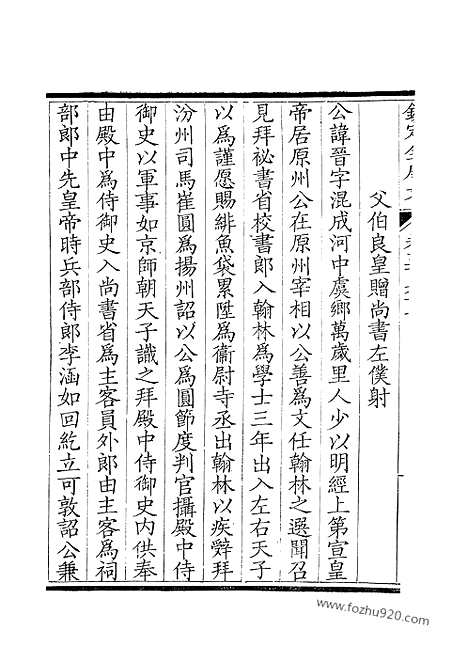 父伯良皇贈尚書左僕射
公諱晉字混成河中虞鄉萬歲里人少以明經上第宣皇
帝居原州公在原州宰相以公善爲文任翰林之選聞召
見拜祕書省校書郎入翰林爲學士三年出入左右天子
以爲謹愿賜緋魚袋累陞爲衞尉寺丞出翰林以疾辭拜
汾州司馬崔圓爲揚州詔以公爲圓節度判官攝殿中侍
御史以軍事如京師朝天子識之拜殿中侍御史內供奉
由殿中爲侍御史入尚書省爲主客員外郎由主客爲祠
部郎中先皇帝時兵部侍郎李涵如回紇立可敦詔公兼
www.fozhu920.com